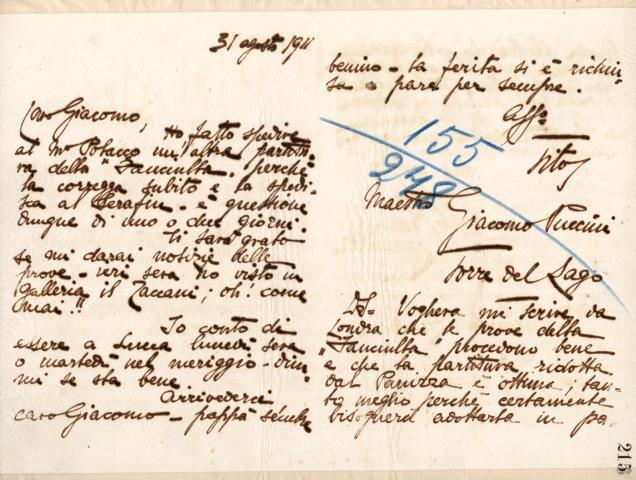 31 agosto 1911
Caro Giacomo,
Ho fatto spedire
al Mº Polacco un'altra partitu-
ra della "Fanciulla" perchè
la corregga subito e la spedi-
sca al Serafin. è questione
dunque di uno o due giorni.
Ti sarò grato
se mi darai notizie delle
prove - ieri sera ho visto in
Galleria il Zaccani; oh! come
mai!!
Io conto di
essere a Lucca lunedì sera
o martedì nel meriggio - dim-
mi se sta bene.
Arrivederci
caro Giacomo - pappà sempre
benino - la ferita si è richiu-
sa e pare per sempre.
Affº
Tito
155
248
Maestro
Giacomo Puccini
Torre del Lago
PS- Voghera mi scrive da
Londra che le prove della
"Fanciulla" procedono bene
e che la partitura ridotta
dal Panizza è ottima; tan-
to meglio perchè certamente
bisognerà adottarla in pa-
215